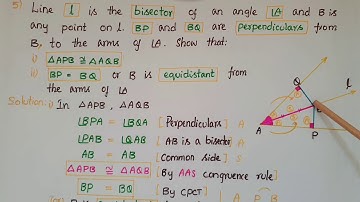 5) Line l is the bisector of an angle ∠A and B is
any point on l. BP and BQ are perpendiculars from
B, to the arms of ∠A. Show that:
i) △APB ≅ △AQB
ii) BP = BQ or B is equidistant from
the arms of ∠A
Solution: i) In △APB, △AQB
∠BPA = ∠BQA [Perpendiculars] A
∠PAB = ∠QAB [AB is a bisector] A
AB = AB [Common side] S
△APB ≅ △AQB [By AAS congruence rule]
BP = BQ [By CPCT]
Q
l
A
P